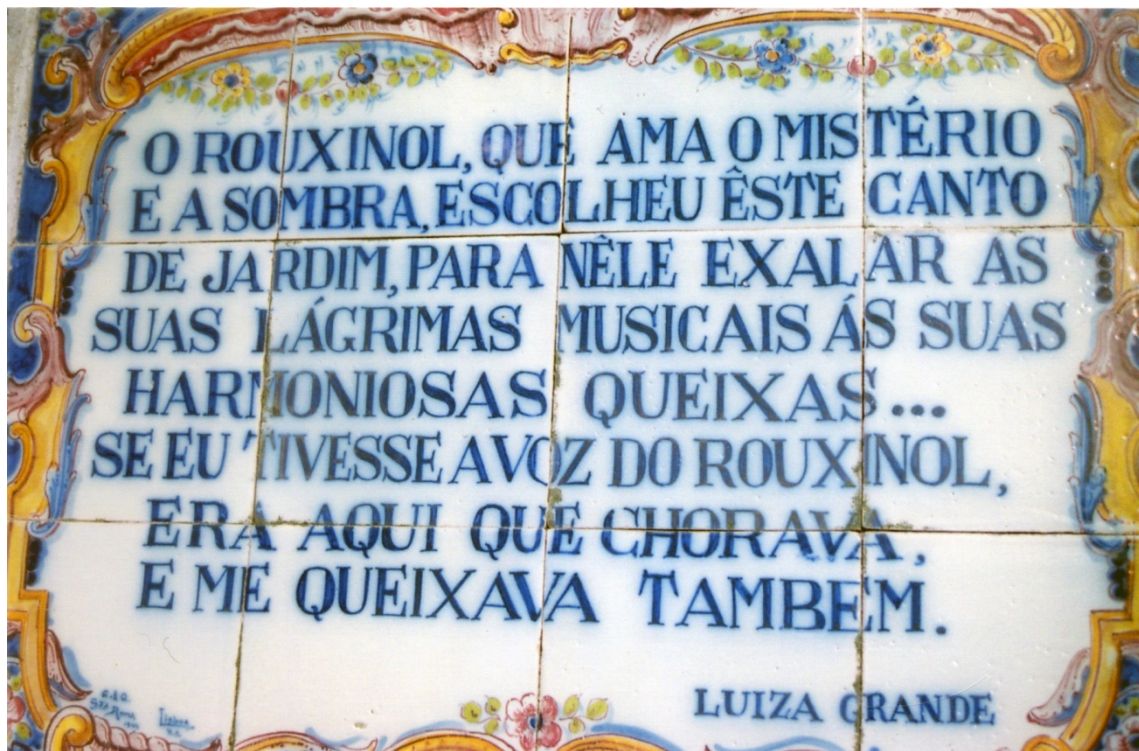 O ROUXINOL, QUE AMA O MISTÉRIO
E A SOMBRA, ESCOLHEU ÊSTE CANTO
DE JARDIM, PARA NÊLE EXALAR AS
SUAS LÁGRIMAS MUSICAIS ÁS SUAS
HARMONIOSAS QUEIXAS...
SE EU TIVESSE A VOZ DO ROUXINOL,
ERA AQUI QUE CHORAVA,
E ME QUEIXAVA TAMBEM.
LUIZA GRANDE
Lisboa